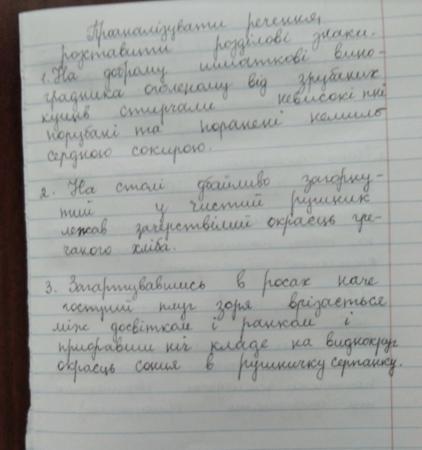 Проаналізувати речення,
розставити розділові знаки.
1. На доброму шматкові вино-
градника оголеному від зрубаних
кущів стирчали невисокі пні
порубані та поранені немило-
сердною сокирою.
2. На столі дбайливо загорну-
тий у чистий рушник
лежав зачерствілий окраєць гре-
чаного хліба.
3. Загартувавшись в росах наче
гострий плуг зоря врізається
між досвітком і ранком і
приоравши ніч кладе на виднокруг
окраєць сонця в рушничку серпанку.